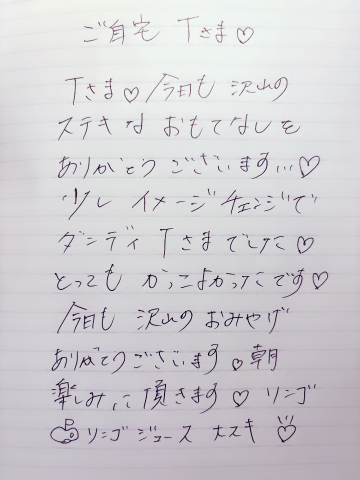 ご自宅 Tさま♡
Tさま♡今日も 沢山の
ステキな おもてなしを
ありがとうございます…♡
少し イメージチェンジで
ダンディ Tさまでした♡
とっても かっこよかったです♡
今日も 沢山の おみやげ
ありがとうございます。朝
楽しみに頂きます♡ リンゴ
リンゴジュース 大スキ♡